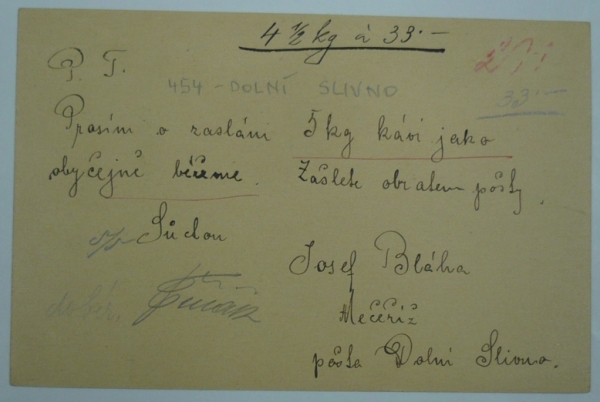 4 1/2 kg á 33·-
P. T.
454 - DOLNÍ SLIVNO
33·-
Prosím o zaslání 5 kg kávi jako
obyčejně béřeme. Zašlete obratem póšty.
Súctou
Josef Bláha
Mečeříž
póšta Dolní Slivno.